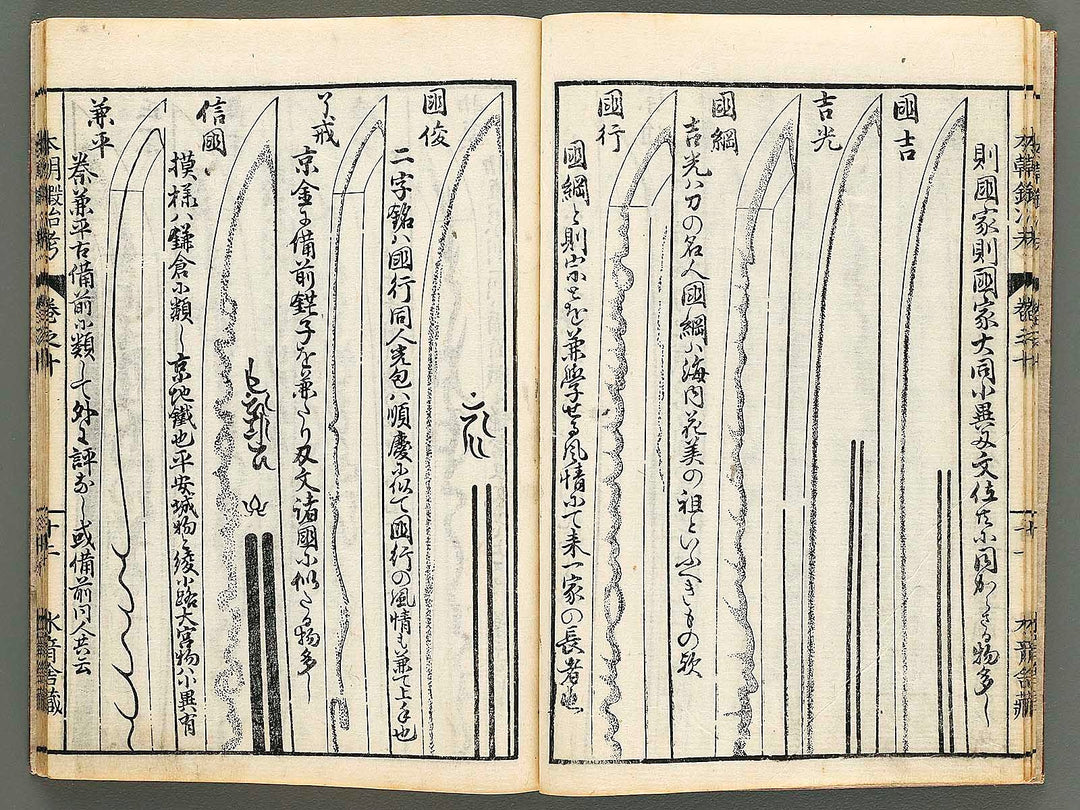 則国家則国家大同小異又文位共小同かたき物多し
國吉
吉光
國綱
吉光ハ刀の名人國綱ハ海内花美の祖といふべきもの歟
國行
國綱と則宗とを兼学せる風情にて来一家の長者也
國俊
二字銘ハ國行同人光包ハ順慶に似て國行の風情も兼て上手也
了戒
京金に備前鉗子を兼たり又文諸国に似たる物多し
信國
摸様ハ鎌倉に類し京地鐵也平安城物と綾小路大宮物ハ小異有
兼平
巻兼平古備前に類して外に評なし或備前同人共云
本朝鍛冶考
巻之十
十二
水音舎蔵